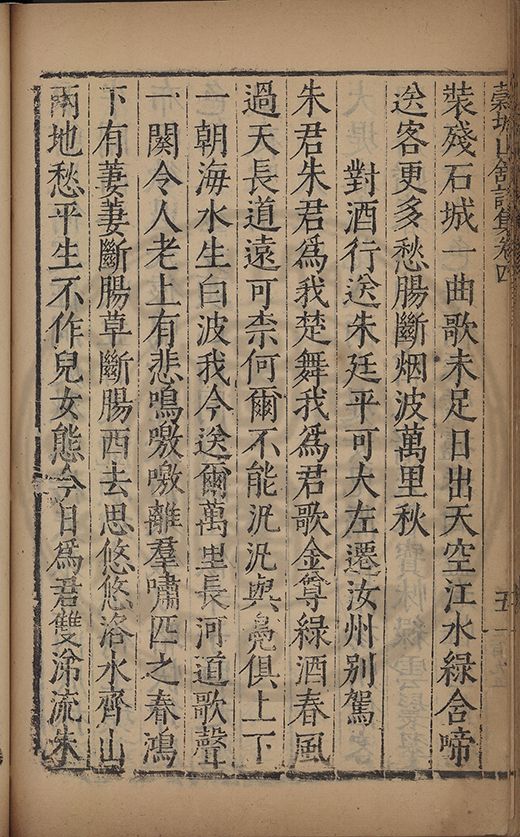 穀城山館詩集卷四
五
裝殘石城一曲歌未足日出天空江水綠含啼
送客更多愁腸斷烟波萬里秋
對酒行送朱廷平可大左遷汝州別駕
朱君朱君爲我楚舞我爲君歌金尊綠酒春風
過天長道遠可柰何爾不能汎汎與鳧俱上下
一朝海水生白波我今送爾萬里長河道歌聲
一闋令人老上有悲鳴嗷嗷離羣嘯匹之春鴻
下有萋萋斷腸草斷腸西去思悠悠洛水齊山
兩地愁平生不作兒女態今日爲君雙涕流朱